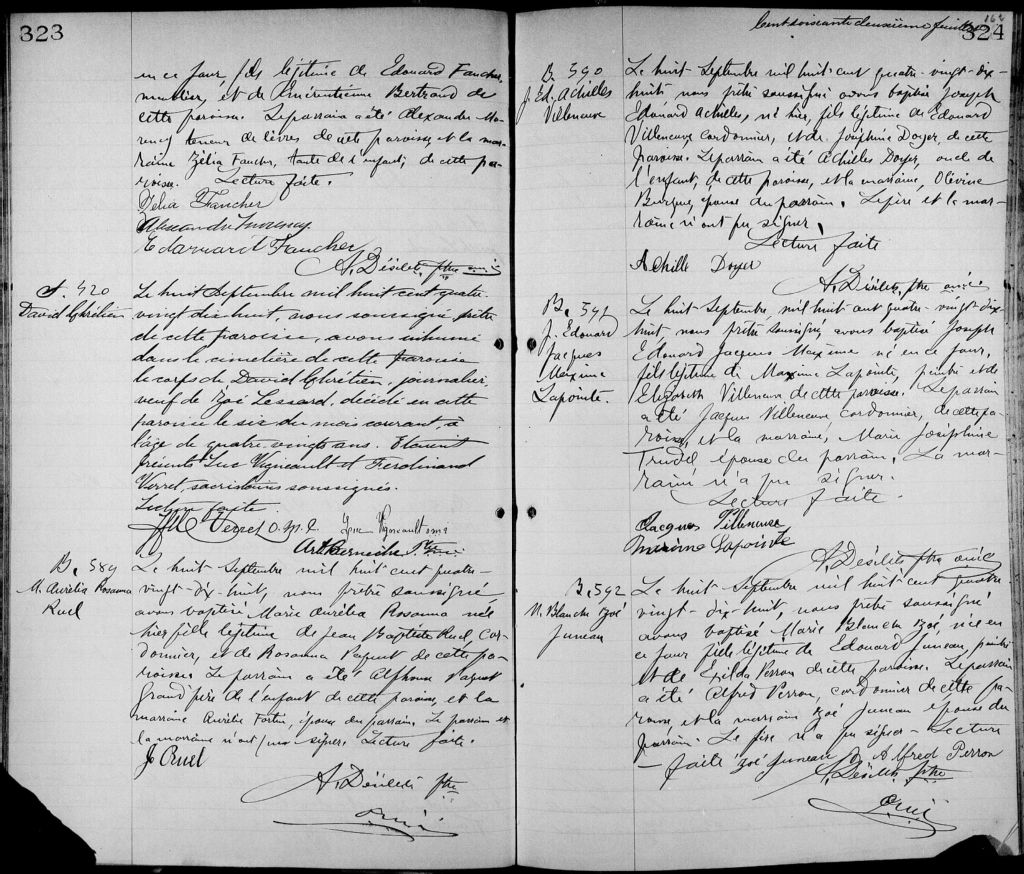 323
en ce jour, fils légitime de Edouard Fancher,
meublier, et de Émérentienne Bertrand de
cette paroisse. Le parrain a été Alexandre
teneur de livres de cette paroisse, et la mar-
raine Zélia Fancher, tante de l'enfant, de cette pa-
roisse. Lecture faite.
Zelia Fancher
Edouard Fancher
A. Désilets, ptre curé
S. 420
David Chrétien
Le huit Septembre mil huit cent quatre-
vingt dix huit, nous soussigné prêtre
de cette paroisse, avons inhumé
dans le cimetière de cette paroisse
le corps de David Chrétien, journalier,
veuf de Zoé Lessard, décédé en cette
paroisse le six du mois courant, à
l'âge de quatre-vingts ans. Étaient
présents Luc Vigneault et Ferdinand
Verret, sacristains soussignés.
Lecture faite.
Verret Luc Vigneault
Art Bernèche Ptre
B. 589
M. Aurélia Rosanna
Ruel
Le huit Septembre mil huit cent quatre-
vingt-dix-huit, nous prêtre soussigné,
avons baptisé Marie Aurélia Rosanna née
hier fille légitime de Jean Baptiste Ruel, cor-
donnier, et de Rosanna Paquet de cette pa-
roisse. Le parrain a été Alphonse Paquet
grand père de l'enfant de cette paroisse, et la
marraine Aurélie Fortin, épouse du parrain. Le parrain et
la marraine n'ont pu signer. Lecture faite.
J. Ruel
A. Désilets ptre
curé
Cent soixante deuxième feuillet
162
324
B. 590
J. Ed. Achilles
Villeneuve
Le huit Septembre mil huit cent quatre-vingt-dix-
huit nous prêtre soussigné avons baptisé Joseph
Edouard Achilles, né hier, fils légitime de Edouard
Villeneuve Cordonnier, et de Joséphine Doyer, de cette
paroisse. Le parrain a été Achilles Doyer, oncle de
l'enfant, de cette paroisse, et la marraine, Olévine
épouse du parrain. Le père et la mar-
raine n'ont pu signer.
Lecture faite
Achille Doyer
A. Désilets, ptre curé
B. 591
J. Edouard
Jacques
Maxime
Lapointe.
Le huit Septembre mil huit cent quatre-vingt-dix
huit, nous prêtre soussigné, avons baptisé Joseph
Edouard Jacques Maxime né en ce jour,
fils légitime de Maxime Lapointe, peintre et de
Elizabeth Villeneuve de cette paroisse. Le parrain
a été Jacques Villeneuve Cordonnier, de cette pa-
roisse, et la marraine, Marie Joséphine
Trudel épouse du parrain. La mar-
raine n'a pu signer.
Lecture faite.
Jacques Villeneuve
Maxime Lapointe
A. Désilets ptre curé
B. 592
M. Blanche Zoé
Juneau
Le huit Septembre mil huit cent quatre
vingt-dix-huit, nous prêtre soussigné
avons baptisé Marie Blanche Zoé, née en
ce jour fille légitime de Edouard Juneau, peintre
et de Exilda Perron de cette paroisse. Le parrain
a été Alfred Perron, cordonnier de cette pa-
roisse et la marraine Zoé Juneau épouse du
parrain. Le père n'a pu signer. Lecture
faite Zoé Juneau Alfred Perron
A. Désilets, ptre
curé